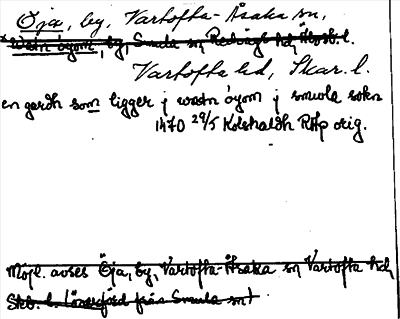 Öja, by, Vartofta-Åsaka sn,
Wästn öyom, by, Smula sn Redvägs hd, Älvsb. l.
Vartofta hd, Skar. l.
en gardh som ligger j wastn öyom j smula sokn
1470 29/5 Kolstraldh RAp orig.
Möjl. avses Öja, by, Vartofta-Åsaka sn Vartofta hd,
Skb. l. från Smula sn